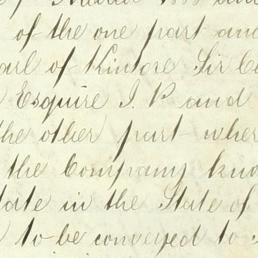 of the one part and
Earl of Kintore Sir
Esquire J. P. and
the other part
the Company
State in the State of
to be conveyed to